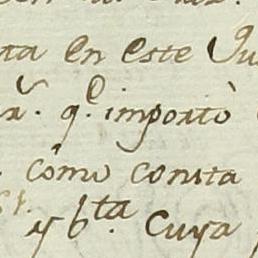 ta en este Ju
r. q.e importò
como consta
y b.ta Cuya